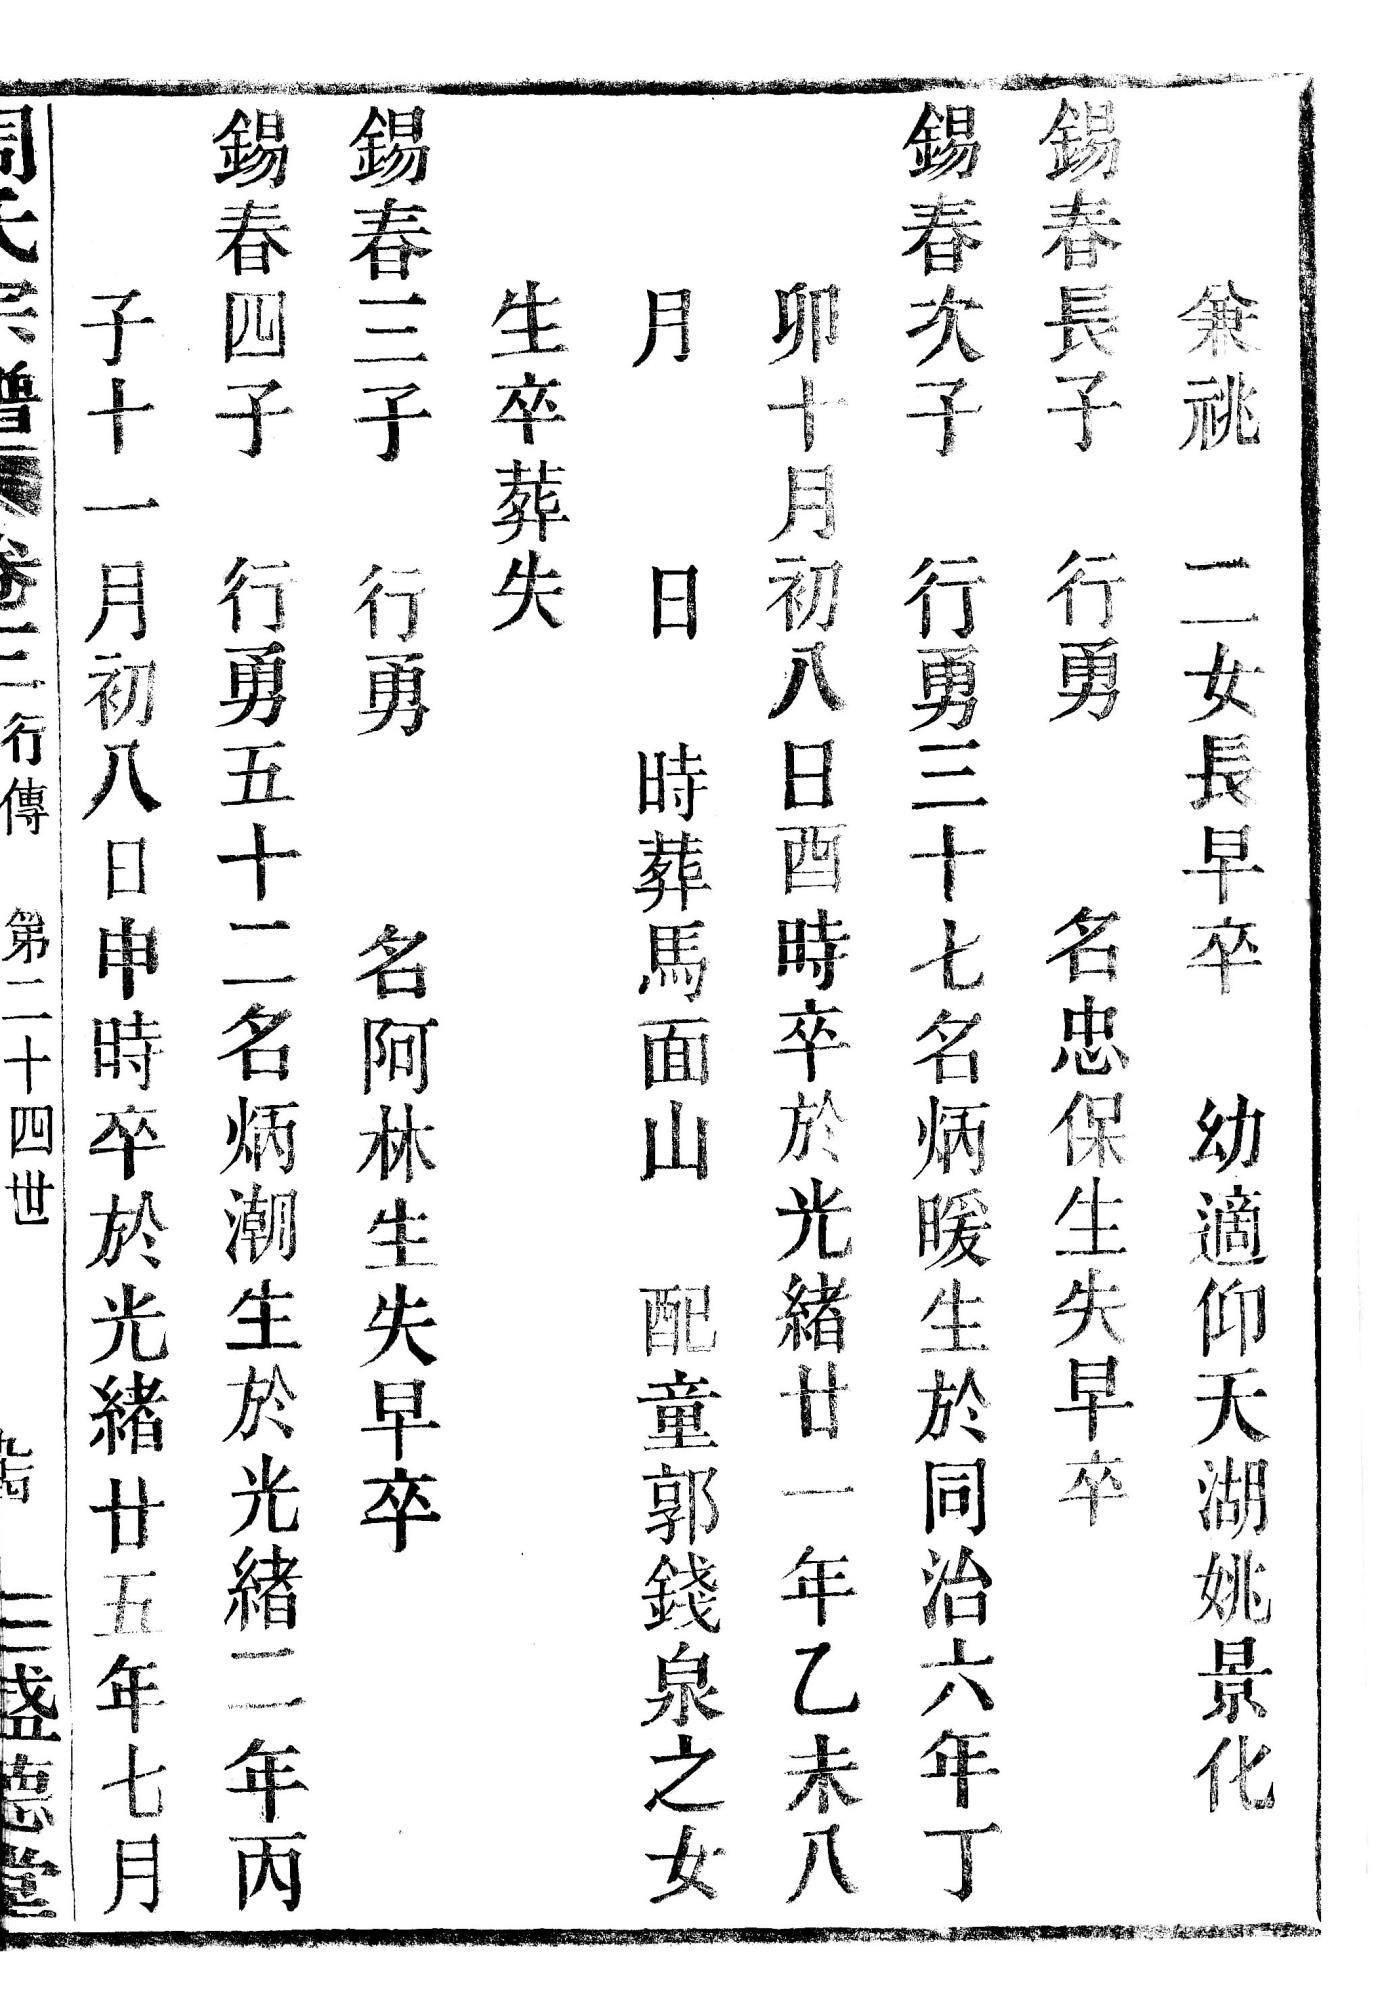 兼祧　二女長早卒　幼適仰天湖姚景化
錫春長子　行勇　　名忠保生失早卒
錫春次子　行勇三十七名炳暖生於同治六年丁
卯十月初八日酉時卒於光緒廿一年乙未八
月　　日　時葬馬面山　配童郭錢泉之女
生卒葬失
錫春三子　行勇　　名阿林生失早卒
錫春四子　行勇五十二名炳潮生於光緒二年丙
子十一月初八日申時卒於光緒廿五年七月
周氏宗譜　卷三　行傳　第二十四世　盛德堂